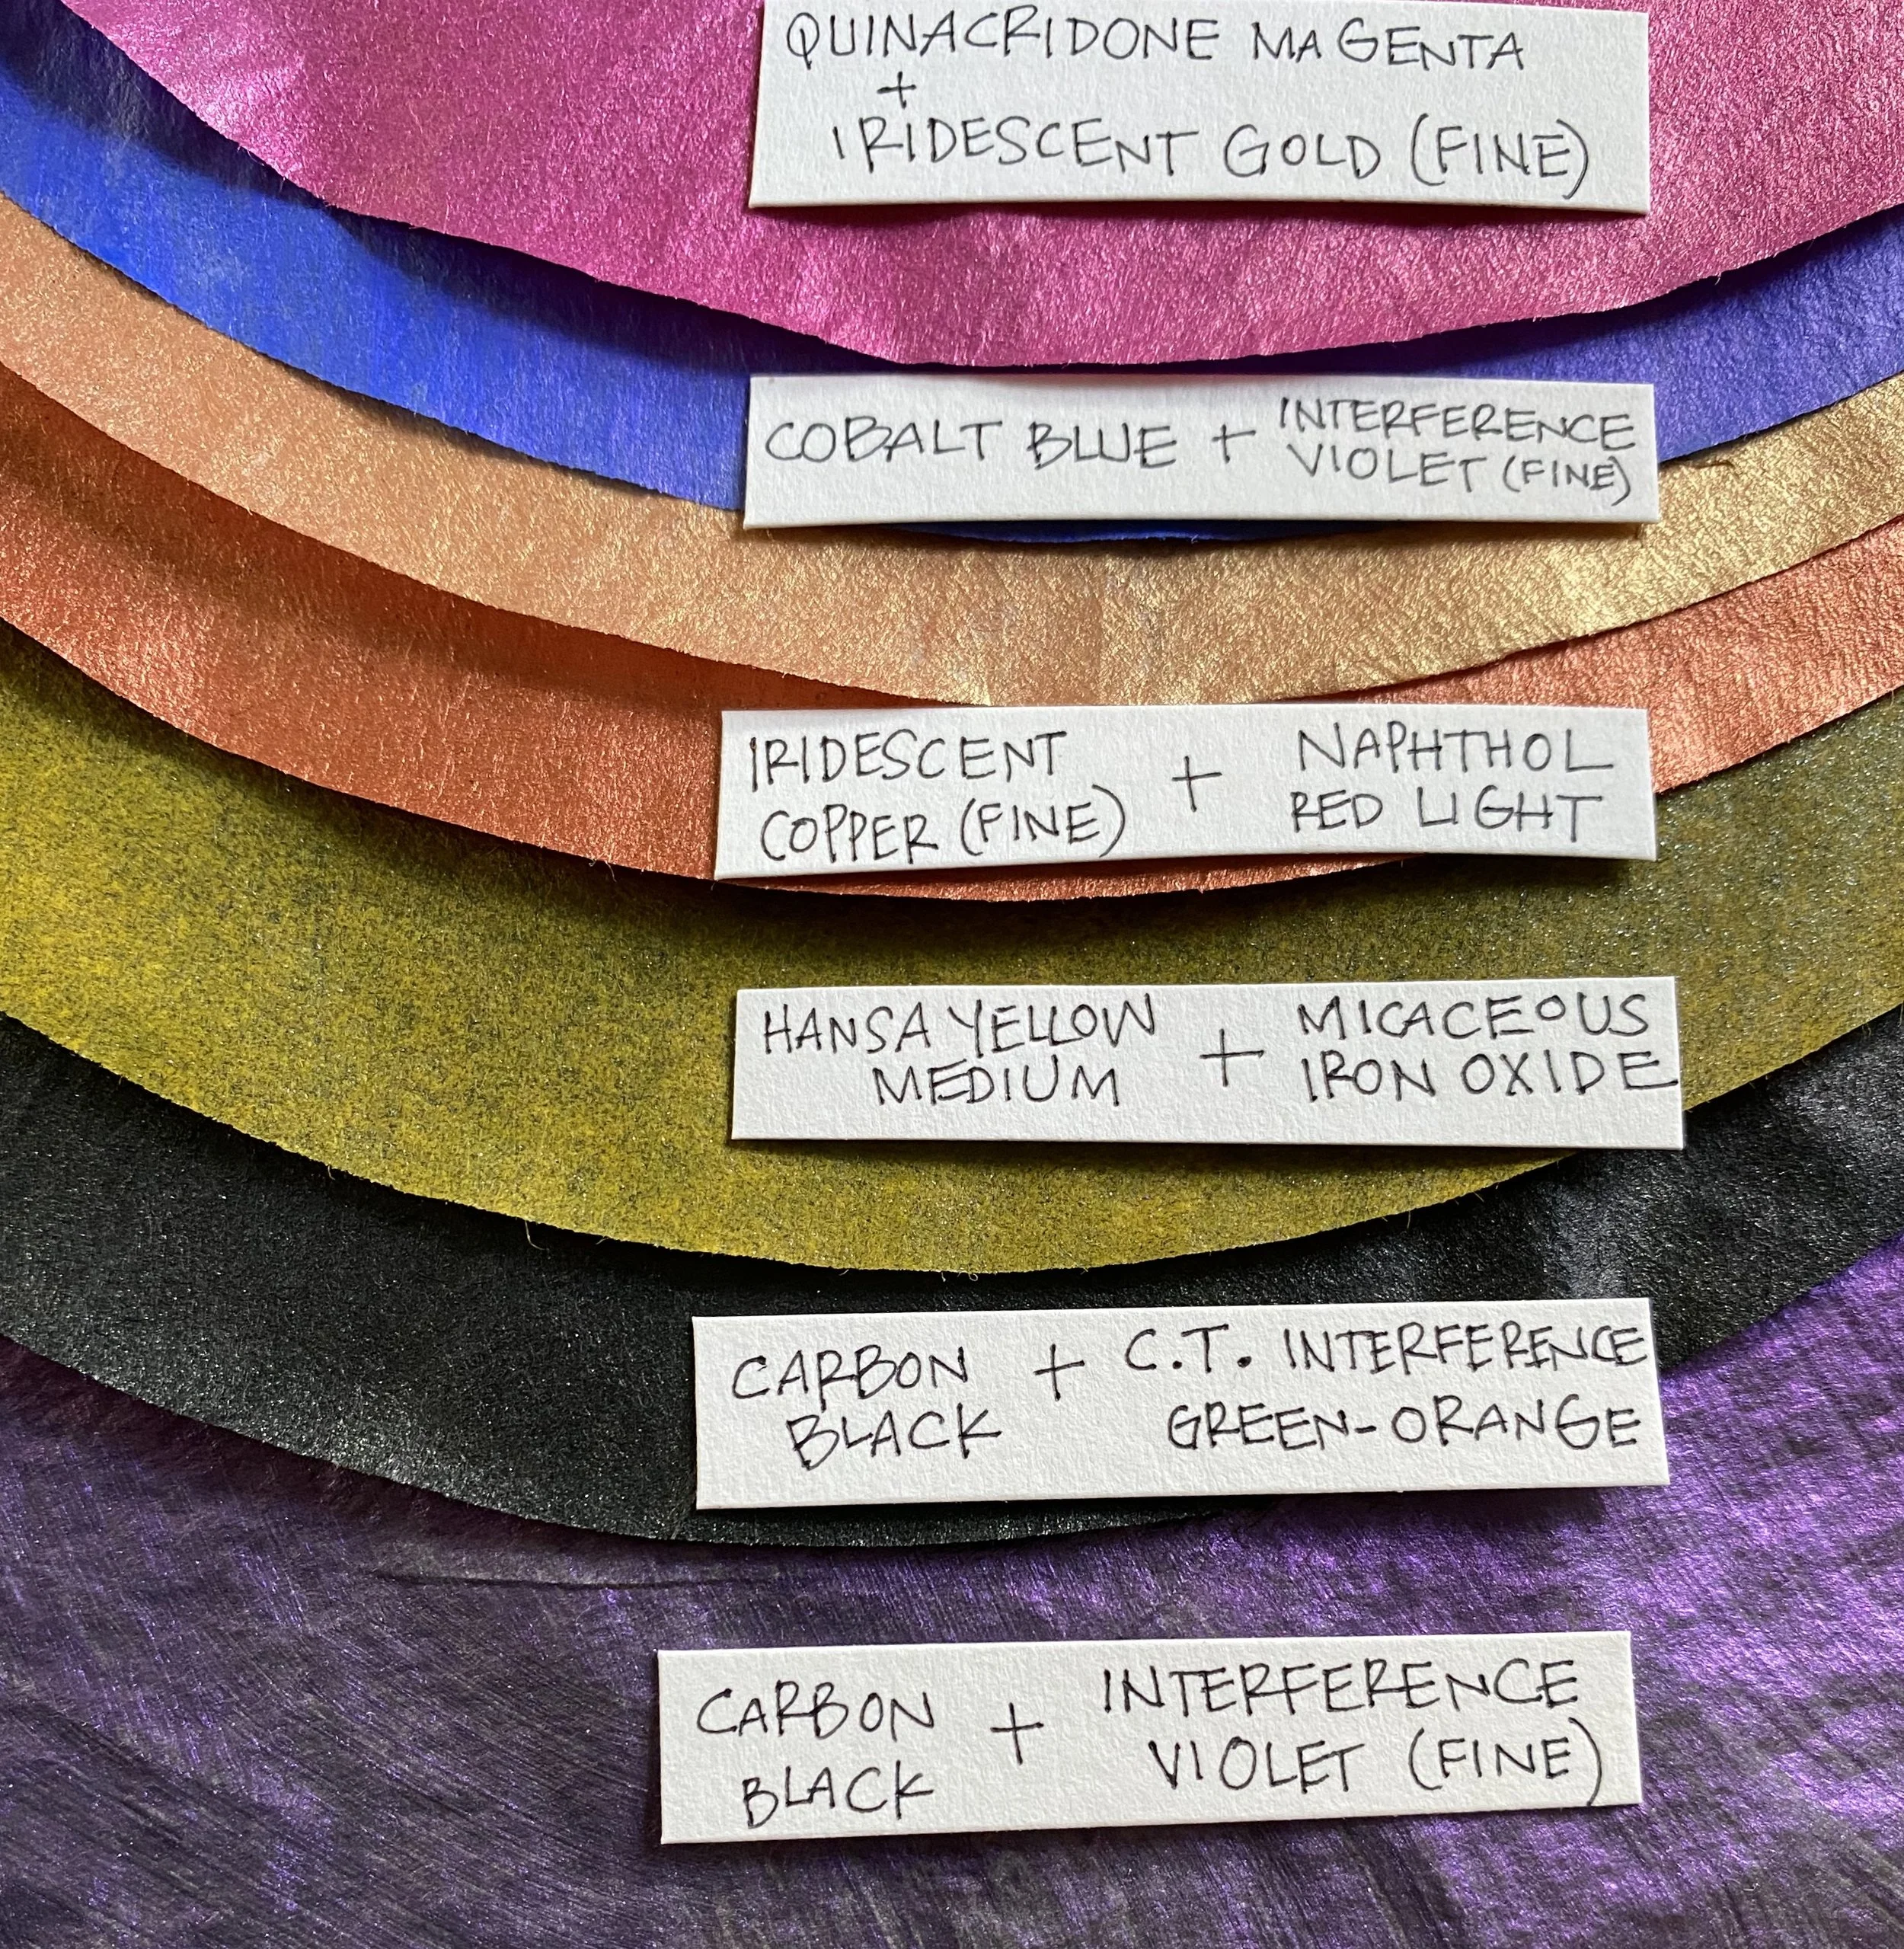 QUINACRIDONE MAGENTA
+
IRIDESCENT GOLD (FINE)
COBALT BLUE + INTERFERENCE
VIOLET (FINE)
IRIDESCENT + NAPHTHOL
COPPER (FINE) RED LIGHT
HANSA YELLOW + MICACEOUS
MEDIUM IRON OXIDE
CARBON + C.T. INTERFERENCE
BLACK GREEN-ORANGE
CARBON + INTERFERENCE
BLACK VIOLET (FINE)